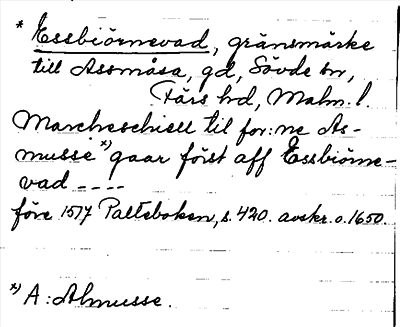 * Essbiörnevad, gränsmärke
till Assmåsa, gd, Sövde sn,
Färs hd, Malm. l.
Marcheschiell til for:ne As-
musse *) gaar först aff Essbiörne-
vad ----
före 1517 Palteboken, s. 420. avskr. o. 1650.
*) A: Almusse.